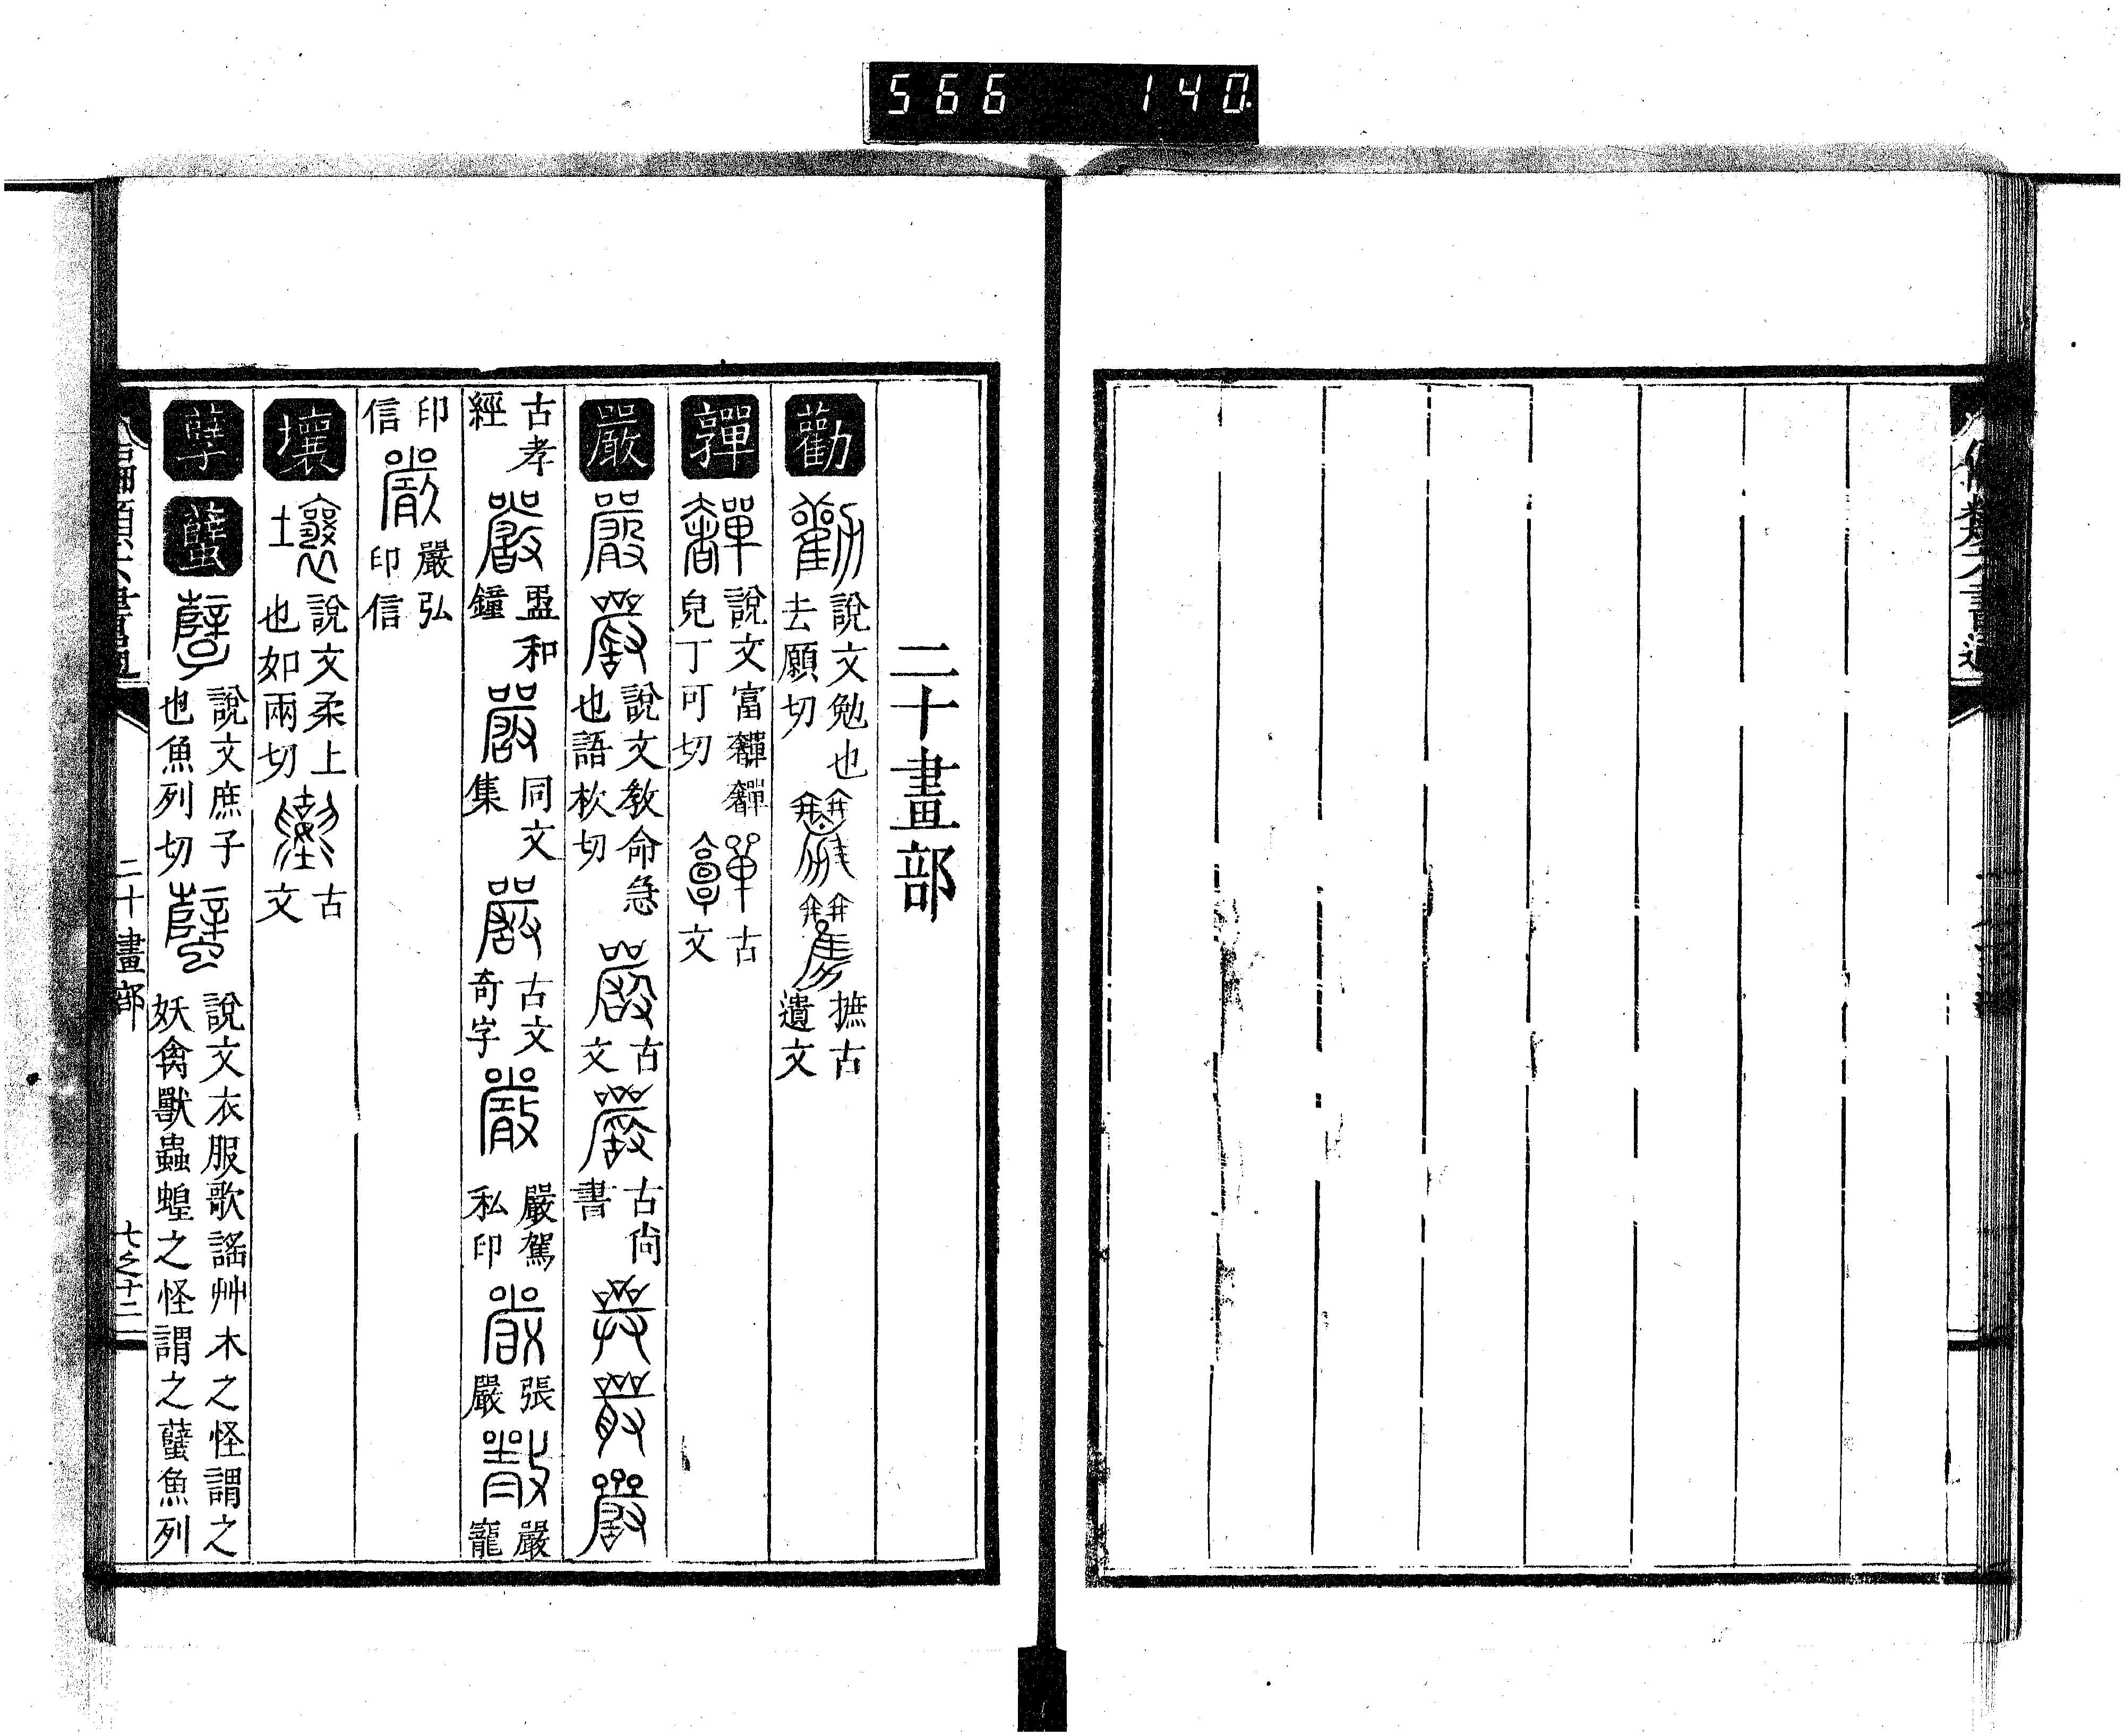 566 140
二十畫部
勸 說文勉也去願切 摭古遺文
奲 說文富奲奲皃丁可切 古文
嚴 說文敎命急也語杴切 古文 古尙書
古孝經 盄和鐘 同文集 古文奇字 嚴駕私印 張嚴 嚴寵
印信 嚴弘印信
壤 說文柔上也如兩切 古文
孼 蠥 說文庶子也魚列切 說文衣服歌謠艸木之怪謂之妖禽獸蟲蝗之怪謂之蠥魚列
二十畫部 七之十二